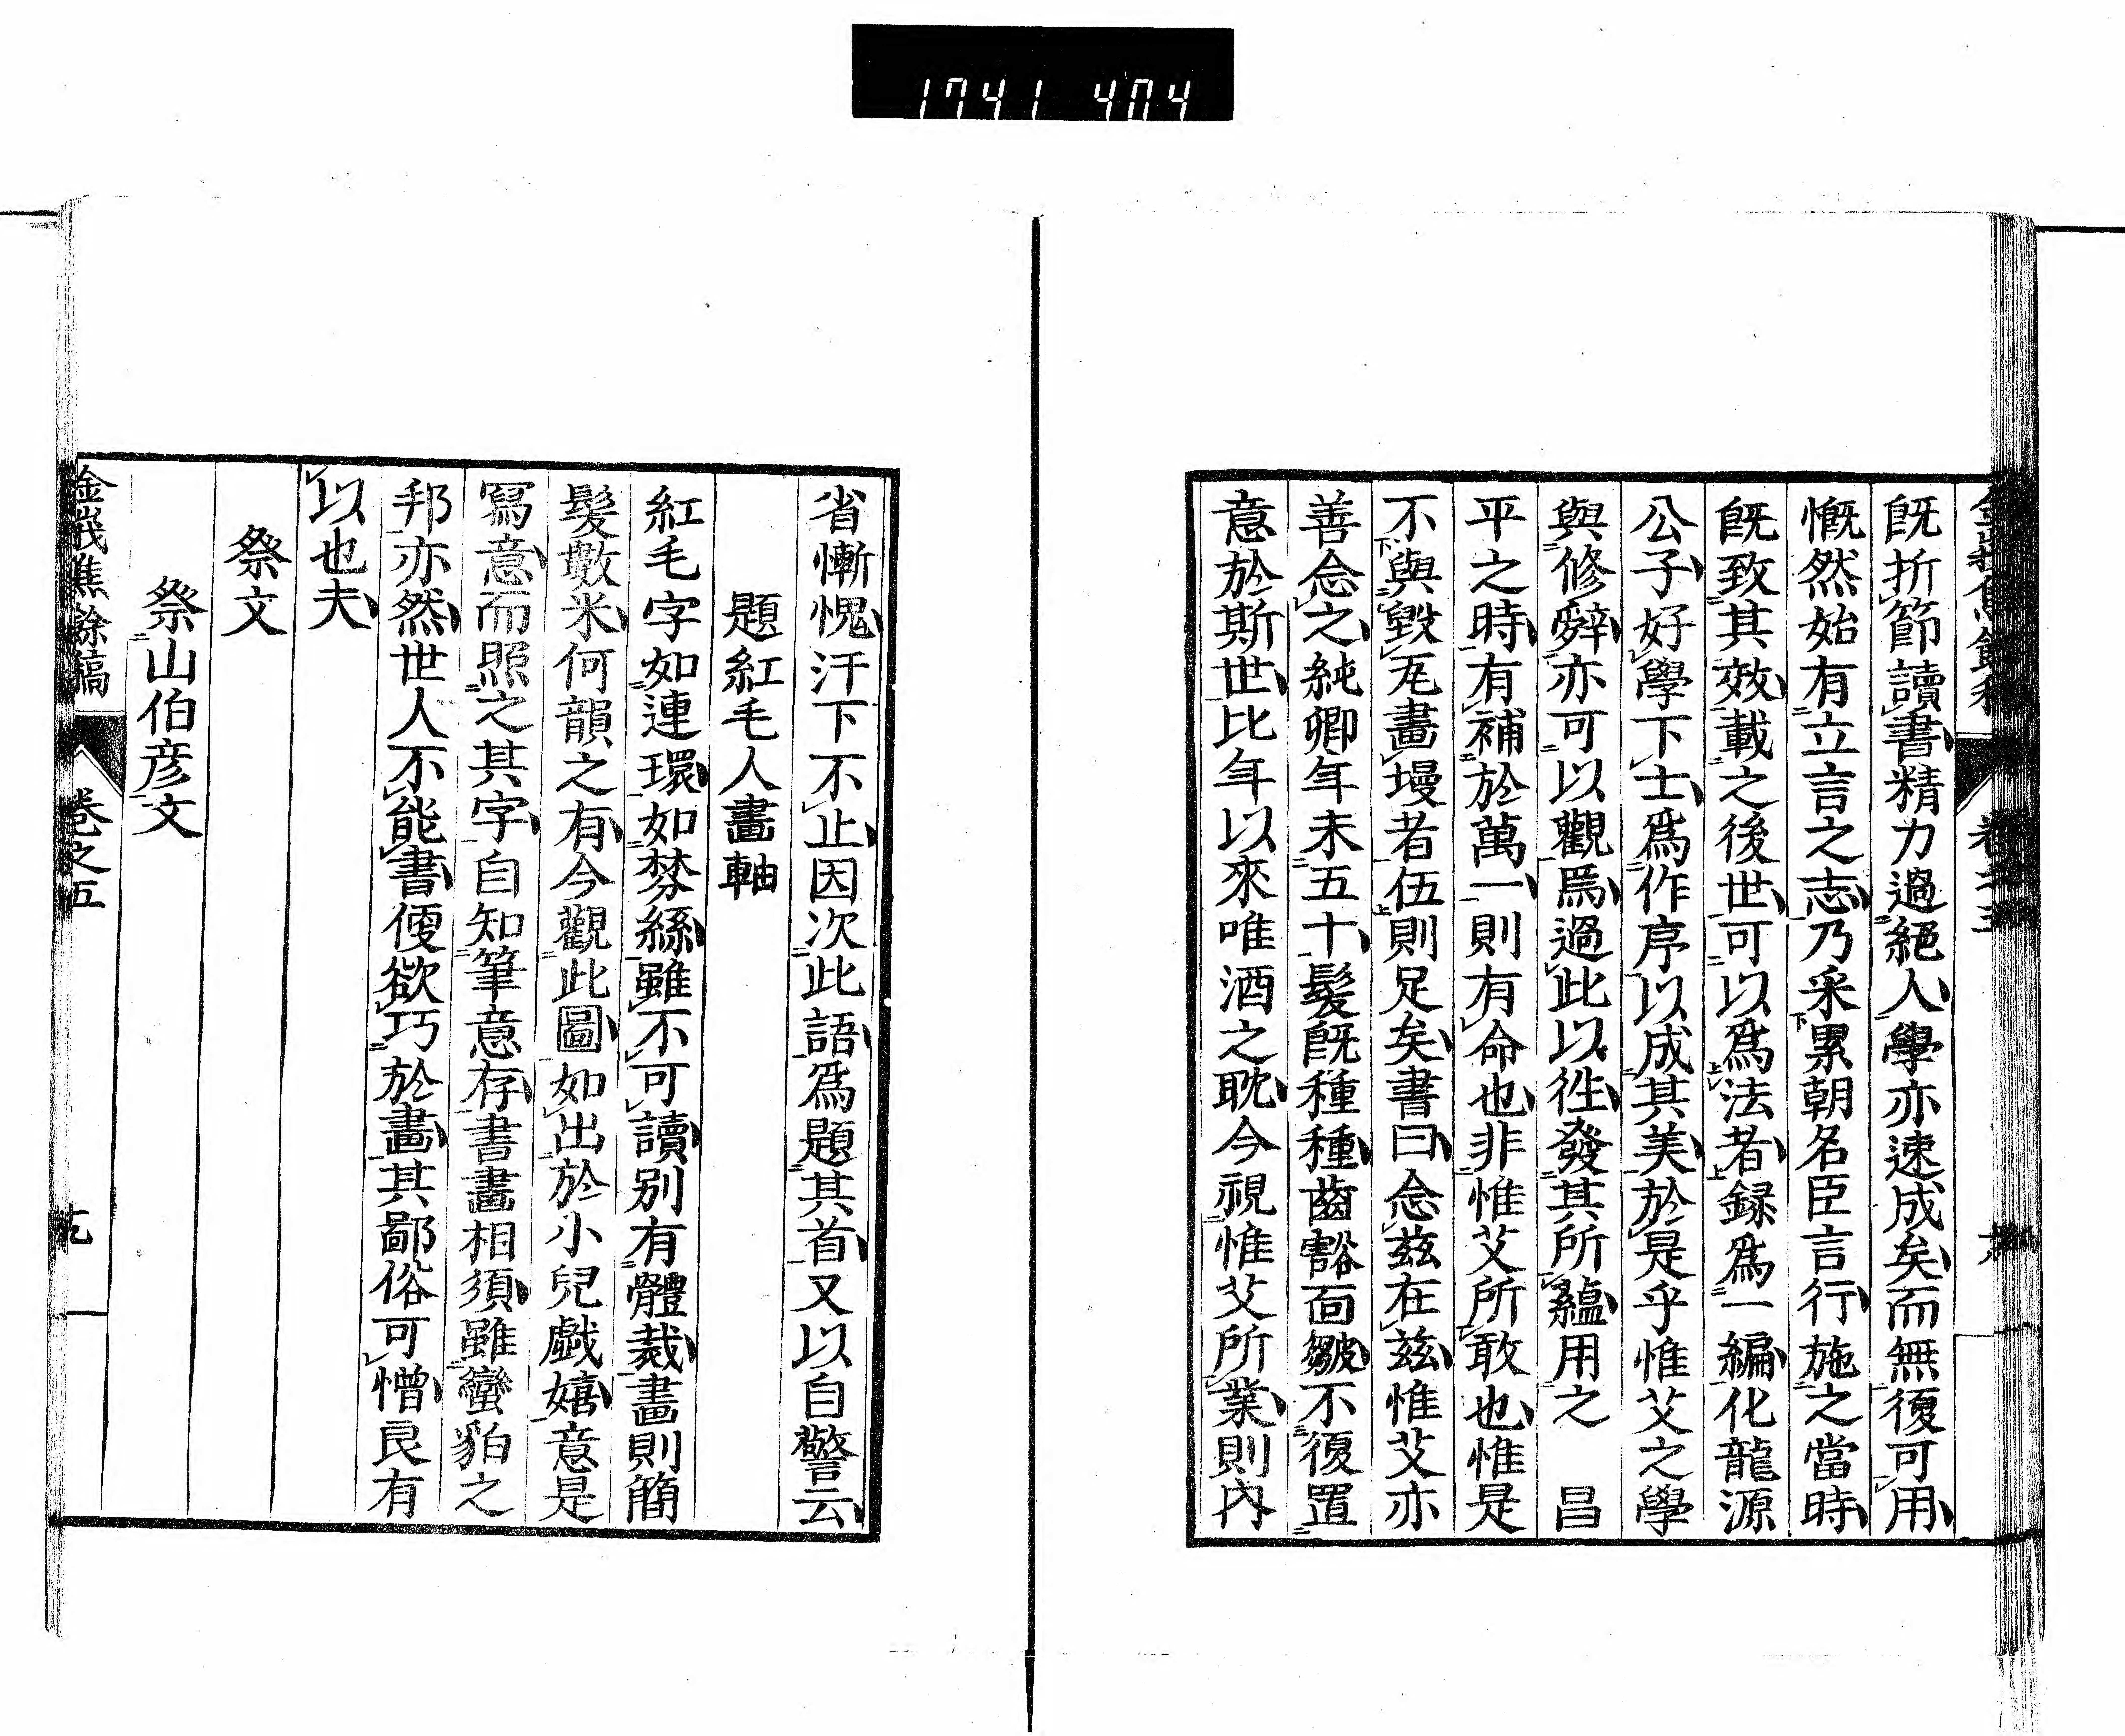 1741 404
既折節讀書精力過絕人學亦速成矣而無復可用
慨然始有立言之志乃采累朝名臣言行施之當時
既致其效載之後世可以爲法者録爲一編化龍源
公子好學下士爲作序以成其美於是乎惟艾之學
與修辭亦可以觀焉過此以徃發其所蘊用之 昌
平之時有補於萬一則有命也非惟艾所敢也惟是
不與毀瓦畫墁者伍則足矣書曰念茲在茲惟艾亦
善念之純卿年未五十髮既種種齒豁面皺不復置
意於斯世比年以來唯酒之耽今視惟艾所業則內
省慚愧汗下不止因次此語爲題其首又以自警云
題紅毛人畫軸
紅毛字如連環如棼絲雖不可讀別有體裁畫則簡
髮數米何韻之有今觀此圖如出於小兒戲嬉意是
寫意而照之其字自知筆意存書畫相須雖蠻貊之
邦亦然世人不能書便欲巧於畫其鄙俗可憎良有
以也夫
祭文
祭山伯彦文
金峩焦餘稿 卷之五